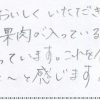 おいしくいただき
果肉が入っている
っています。これから
と〜と感じます